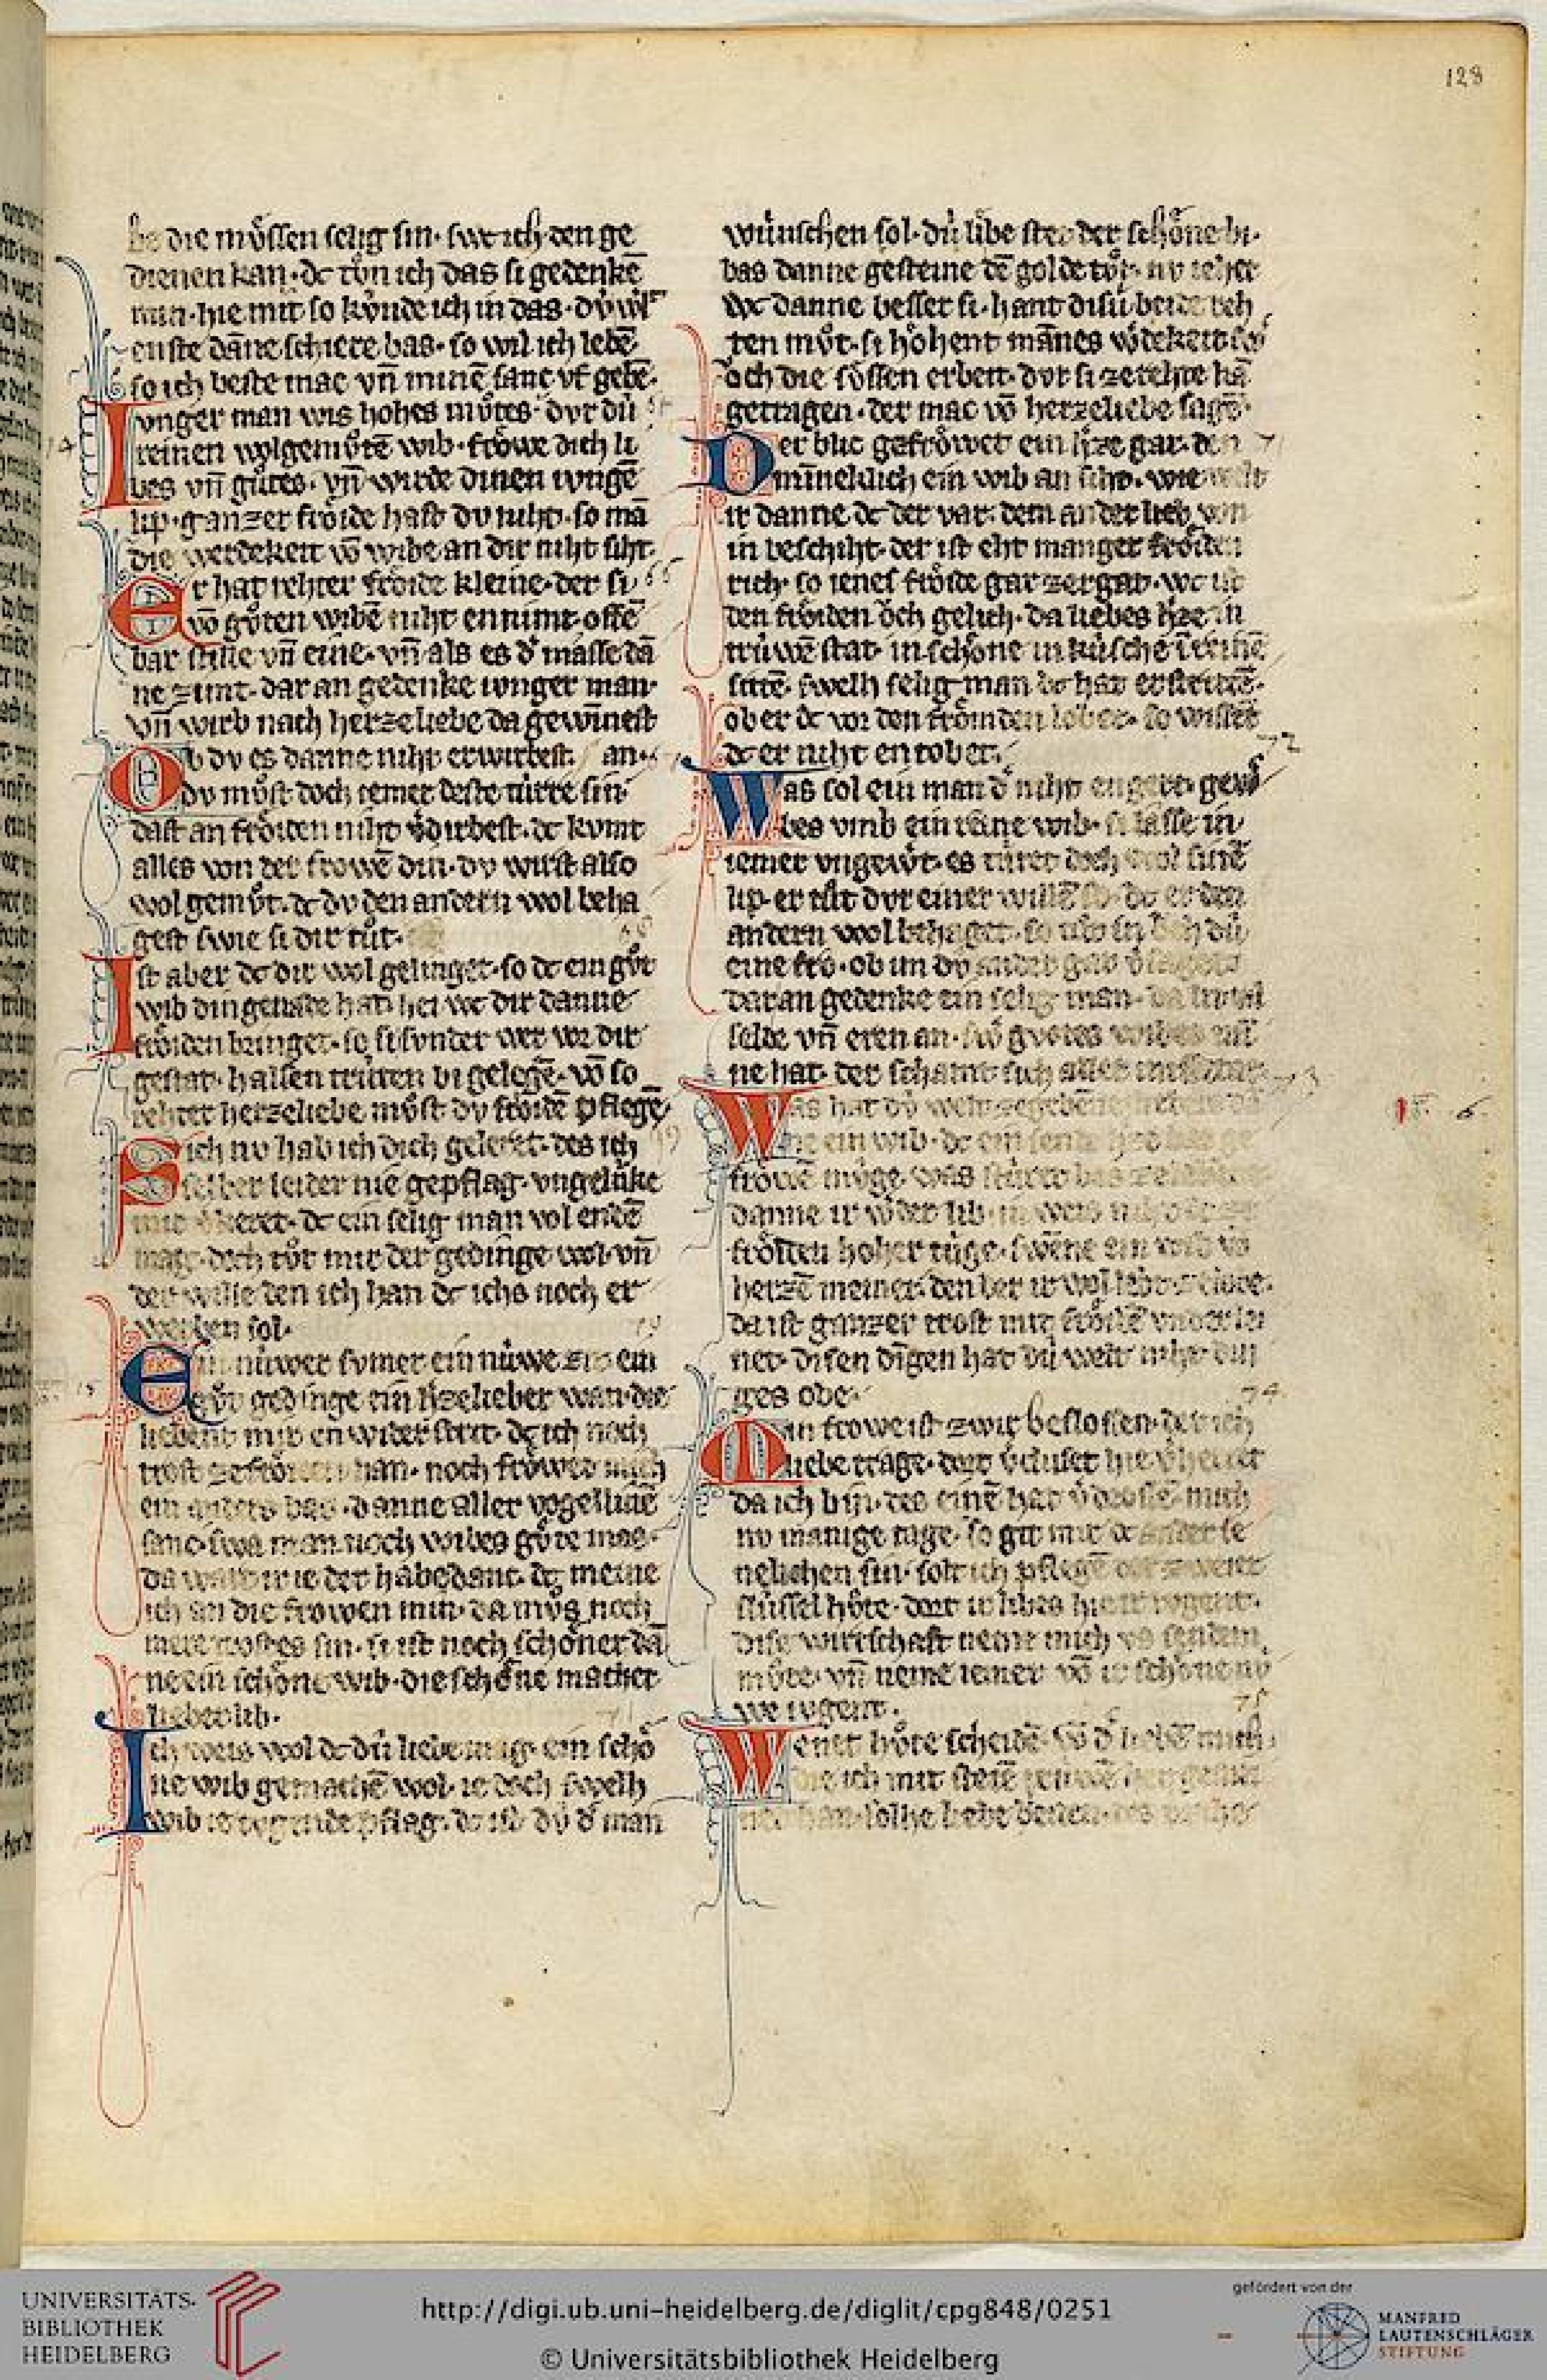 128
be die mvͤssen selig sin· swc ich den ge
dienen kan· dc tvͦn ich das si gedenkē
min· hie mit so kvnde ich in das· dv́ wil
enste dāne schiere bas· so wil ich lebē
so ich beste mac vn̄ minē sanc vf gebē·
Ivnger man wis hohes mvͦtes· dvr dú
reinen wolgemvͦtē wib· froͤwe dich li
bes vn̄ gv̊tes· vn̄ wirde dinen ivngē
lip· ganzer froͤide hast dv niht· so mā
die werdekeit vō wibe an dir niht siht·
Er hat rehter froͤide kleine· der si
vō gvͦten wibē niht en nimt· offē
bar stille vn̄ eine· vn̄ als es d' masse dā
ne zimt· dar an gedenke ivnger man·
vn̄ wirb nach herzeliebe da gewinnest
Ob dv es danne niht erwirbest· an·
dv mvͦst doch iemer deste tivrre sin
dast an froͤiden niht v'dirbest· dc kvmt
alles von der frowē din· dv wirst also
wol gemvͦt· dc dv den andern wol beha
gest swie si dir tuͦt·
Ist aber dc dir wol gelinget· so dc ein gvͦt
wib din genade hat· hei wc dir danne
froͤiden bringet· so si sunder wer vor dir
gestat· halsen trúten bi gelegē· vō so
rehter herzeliebe mvͦst dv froͤidē pflegē
Sich nv hab ich dich geleret· des ich
selber leider nie gepflag· vngelúke
mir v'keret· dc ein selig man vol endē
mag· doch tuͦt mir der gedinge wol· vn̄
der wille den ich han dc ichs noch er
werben sol·
Ein núwer svmer ein núwe zit· ein
gvͦt gedinge ein h'zelieber wan· die
liebent mir en wider strit· dc ich noch
trost ze froͤiden han· noch froͤwet mich
ein anders bas· danne aller vogellinē
sanc· swa man noch wibes gvͤte mas·
da wart ir ie der habedanc· dc meine
ich an die frowen min· da mvͦs noch
mere trostes sin· si ist noch schoͤner dā
ne ein schoͤne wib· die schoͤne machet
lieber lib·
Ich weis wol dc dú liebe mag· ein schoͤ
ne wib gemachē wol· ie doch swelh
wib ie tvgende pflag· dc ist dú d' man
wúnschen sol· dú libe stet der schoͤne bi·
bas danne gesteine dē golde tuͦt· nv iehet
wc danne besser si· hant disú beide reh
ten mvͦt· si hoͤhent mānes w'dekeit
och die sůssen erbeit· dvr si ze rehte hā
getragen· der mac vō herzeliebe sagē·
Der blic gefroͤwet ein h'ze gar· den
minneklich ein wib an siht· wie welt
ir danne dc der var· dem ander lieb von
in beschiht· der ist eht manger froͤiden
rich· so ienes froͤide gar zergat· wc ist
den froͤiden och gelich· da liebes h'ze in
trúwē stat· in schoͤne in kúsche in reinē
sitē· swelh selig man dc hat erstritē·
ob er dc vor den froͤmden lobet· so wisset
dc er niht en tobet·
72
Was sol ein man d' niht engert· gew
bes vmb ein reine wib· si lasse in
iemer vngewert· es túret doch wol sinē
lip· er tuͦt dvr einer willē so· dc er den
andern wol behaget· so tuͦt in och dú
eine fro· ob im dú ander gar v'saget·
daran gedenke ein selig man· da lit vil
selde vn̄ eren an· swer gvotes wibes mī
ne hat· der schamt sich aller missetat·
73
Was hat dú welt ze gebēne liebers dā
ne ein wib· dc ein sende h'ze bas
froͤwē mvͤge· was stúret bas ze lebēne
danne ir w'der lib· in weis niht dc ze
froͤiden hoher túge· swēne ein wib vō
herzē meinet· den der ir wol lebt ze lobe·
da ist ganzer trost mit froͤidē vnderlei
net· disen dīgen hat dú welt niht din
ges obe·
74
Min frowe ist zwir beslossen· der ich
liebe trage· dort v'cluset hie v'heret
da ich bin· des einē hat v'drossē mich
nv manige tage· so git mir dc ander se
nelichen sin· solt ich pflegē der zweier
slússel hvͦte· dort ir libes hie ir tvgent·
dise wirtschaft neme mich vs sendem
mvͦte· vn̄ neme iemer vō ir schoͤne nú
we ivgent·
75
Wenet hvͦte scheidē· vō d' liebē mich
die ich mit stetē trúwē her gemei
net han· solhe liebe leiden· des v'zihe
UNIVERSITÄTS-
BIBLIOTHEK
HEIDELBERG
http://digi.ub.uni-heidelberg.de/diglit/cpg848/0251
© Universitätsbibliothek Heidelberg
gefördert von der
MANFRED
LAUTENSCHLÄGER
STIFTUNG